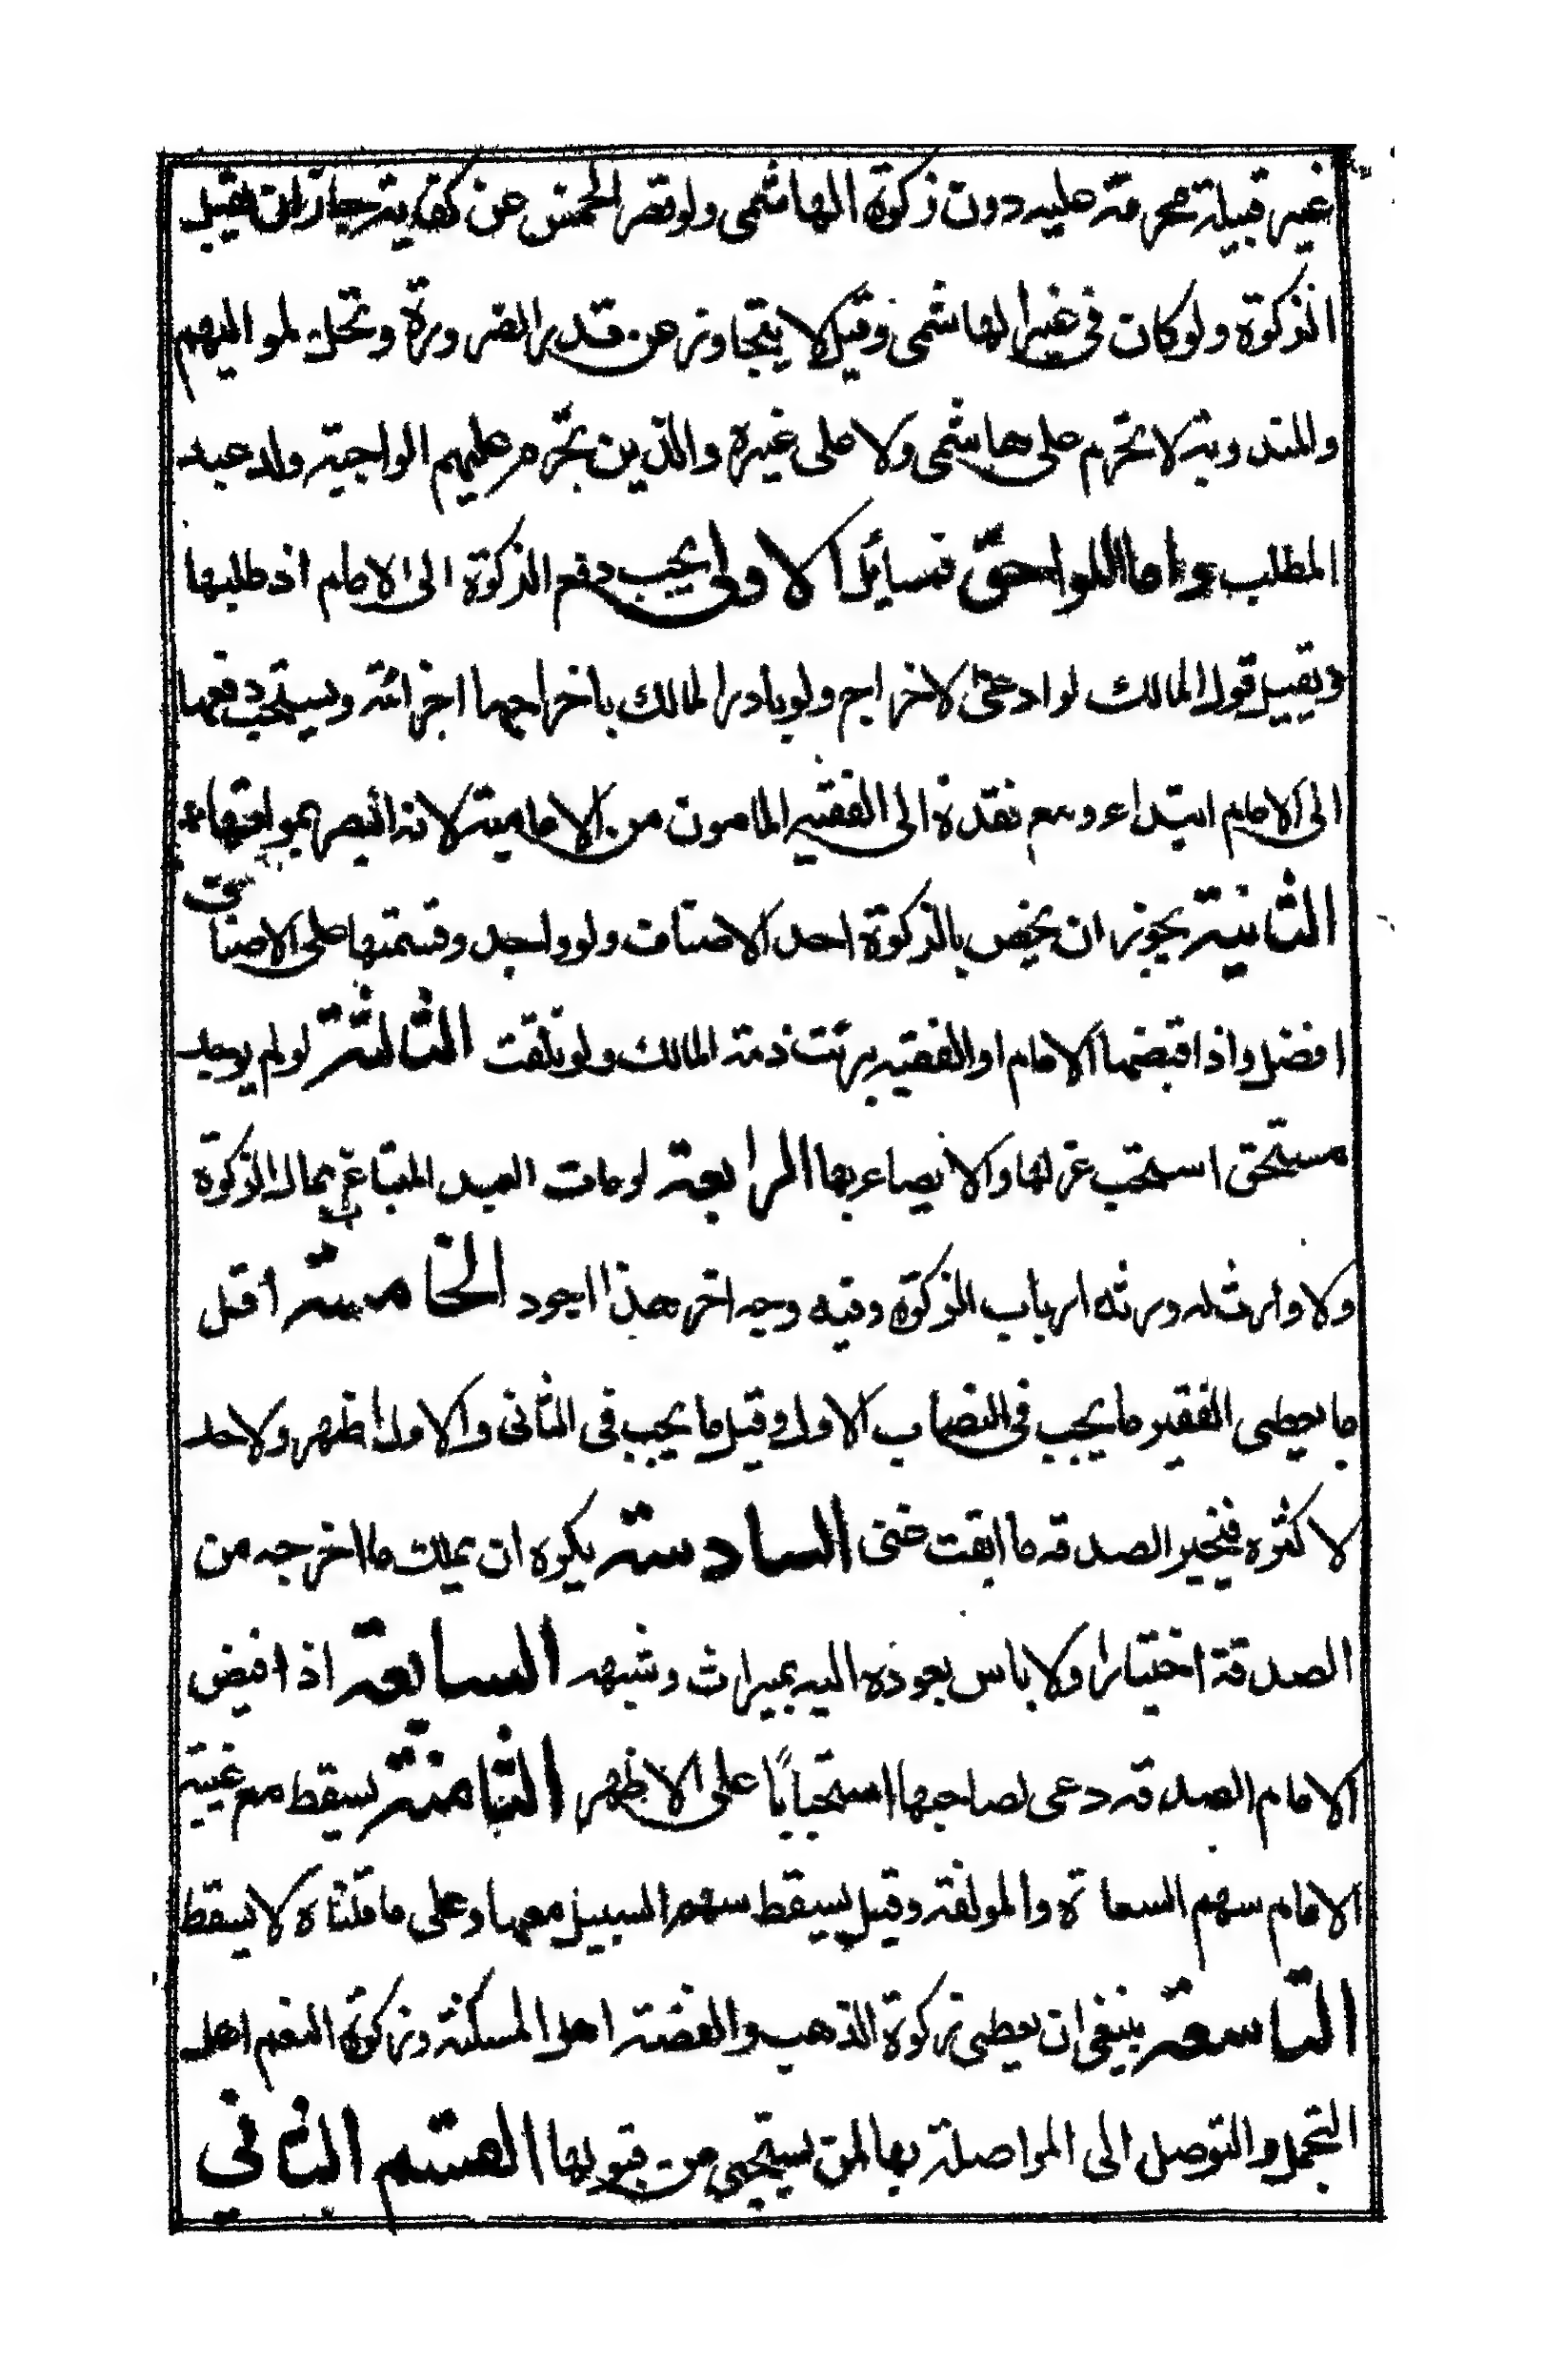 غير قبيلة محرمة عليه دون زكوة الهاشمى ولو قصر الخمس عن كفايته جاز ان يقبل
الزكوة ولو كان فى غير الهاشمى وقيل لا يتجاوز عن قدر الضرورة وتحل لمواليهم
والمندوبة لا تحرم على هاشمى ولا على غيره والذين تحرم عليهم الواجبة ولد عبد
المطلب واما اللواحق فمسائل الاولى يجب دفع الزكوة الى الامام اذ طلبها
ويقبل قول المالك لو ادعى الاخراج ولو بادر المالك باخراجها اجزائته ويستحب دفعها
الى الامام ابتداء ومع فقده الى الفقيه المامون من الامامية لانه ابصر بمواقعها
الثانية يجوز ان يخص بالزكوة احد الاصناف ولو واحد وقسمتها على الاصناف
افضل واذا قبضها الامام او الفقيه برئت ذمة المالك ولو تلفت الثالثة لو لم يوجد
مستحق استحب عزلها والايصاء بها الرابعة لو مات العبد المبتاع بمال الزكوة
ولا وارث له ورثه ارباب الزكوة وفيه وجه اخر هذا اجود الخامسة اقل
ما يعطى الفقير ما يجب فى النصاب الاول وقيل ما يجب فى الثانى والاول اظهر ولا حد
لاكثره فخير الصدقه ما ابقت غنى السادسة يكره ان يملك ما اخرجه من
الصدقة اختيارا ولا باس بعوده اليه بميراث وشبهه السابعة اذا قبض
الامام الصدقه دعى لصاحبها استحبابًا على الاظهر الثامنة يسقط مع غيبة
الامام سهم السعاة والمولفة وقيل يسقط سهم السبيل معها وعلى ما قلناه لا يسقط
التاسعة ينبغى ان يعطى زكوة الذهب والفضة اهل المسكنة وزكوة النعم اهل
التجمل والتوصل الى المواصلة بها لمن يستحيى من قبولها القسم الثاني